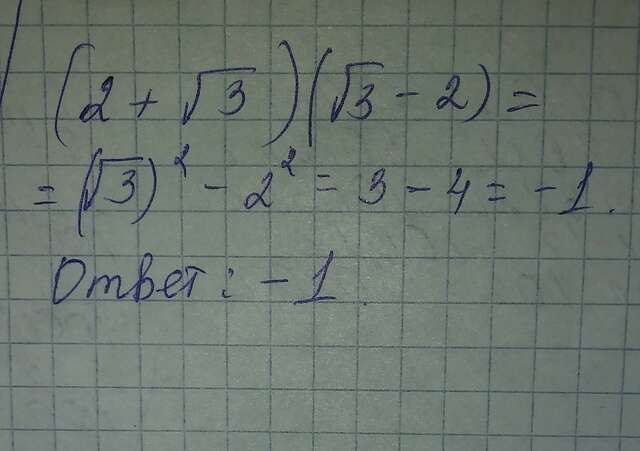 (2 + √3)(√3 - 2) =
= (√3)² - 2² = 3 - 4 = -1.
Ответ: -1.